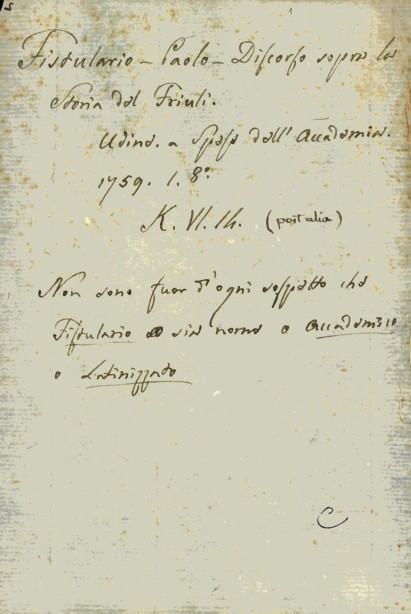 Fistulario - Paolo - Discorso sopra la
Storia del Friuli.
Udine. a spese dell' Accademia.
1759. 1. 8º.
K. VI. 14. (post alia)
Non sono fuor d'ogni sospetto che
Fistulario sia nome o Accademico
o Latinizzato
C